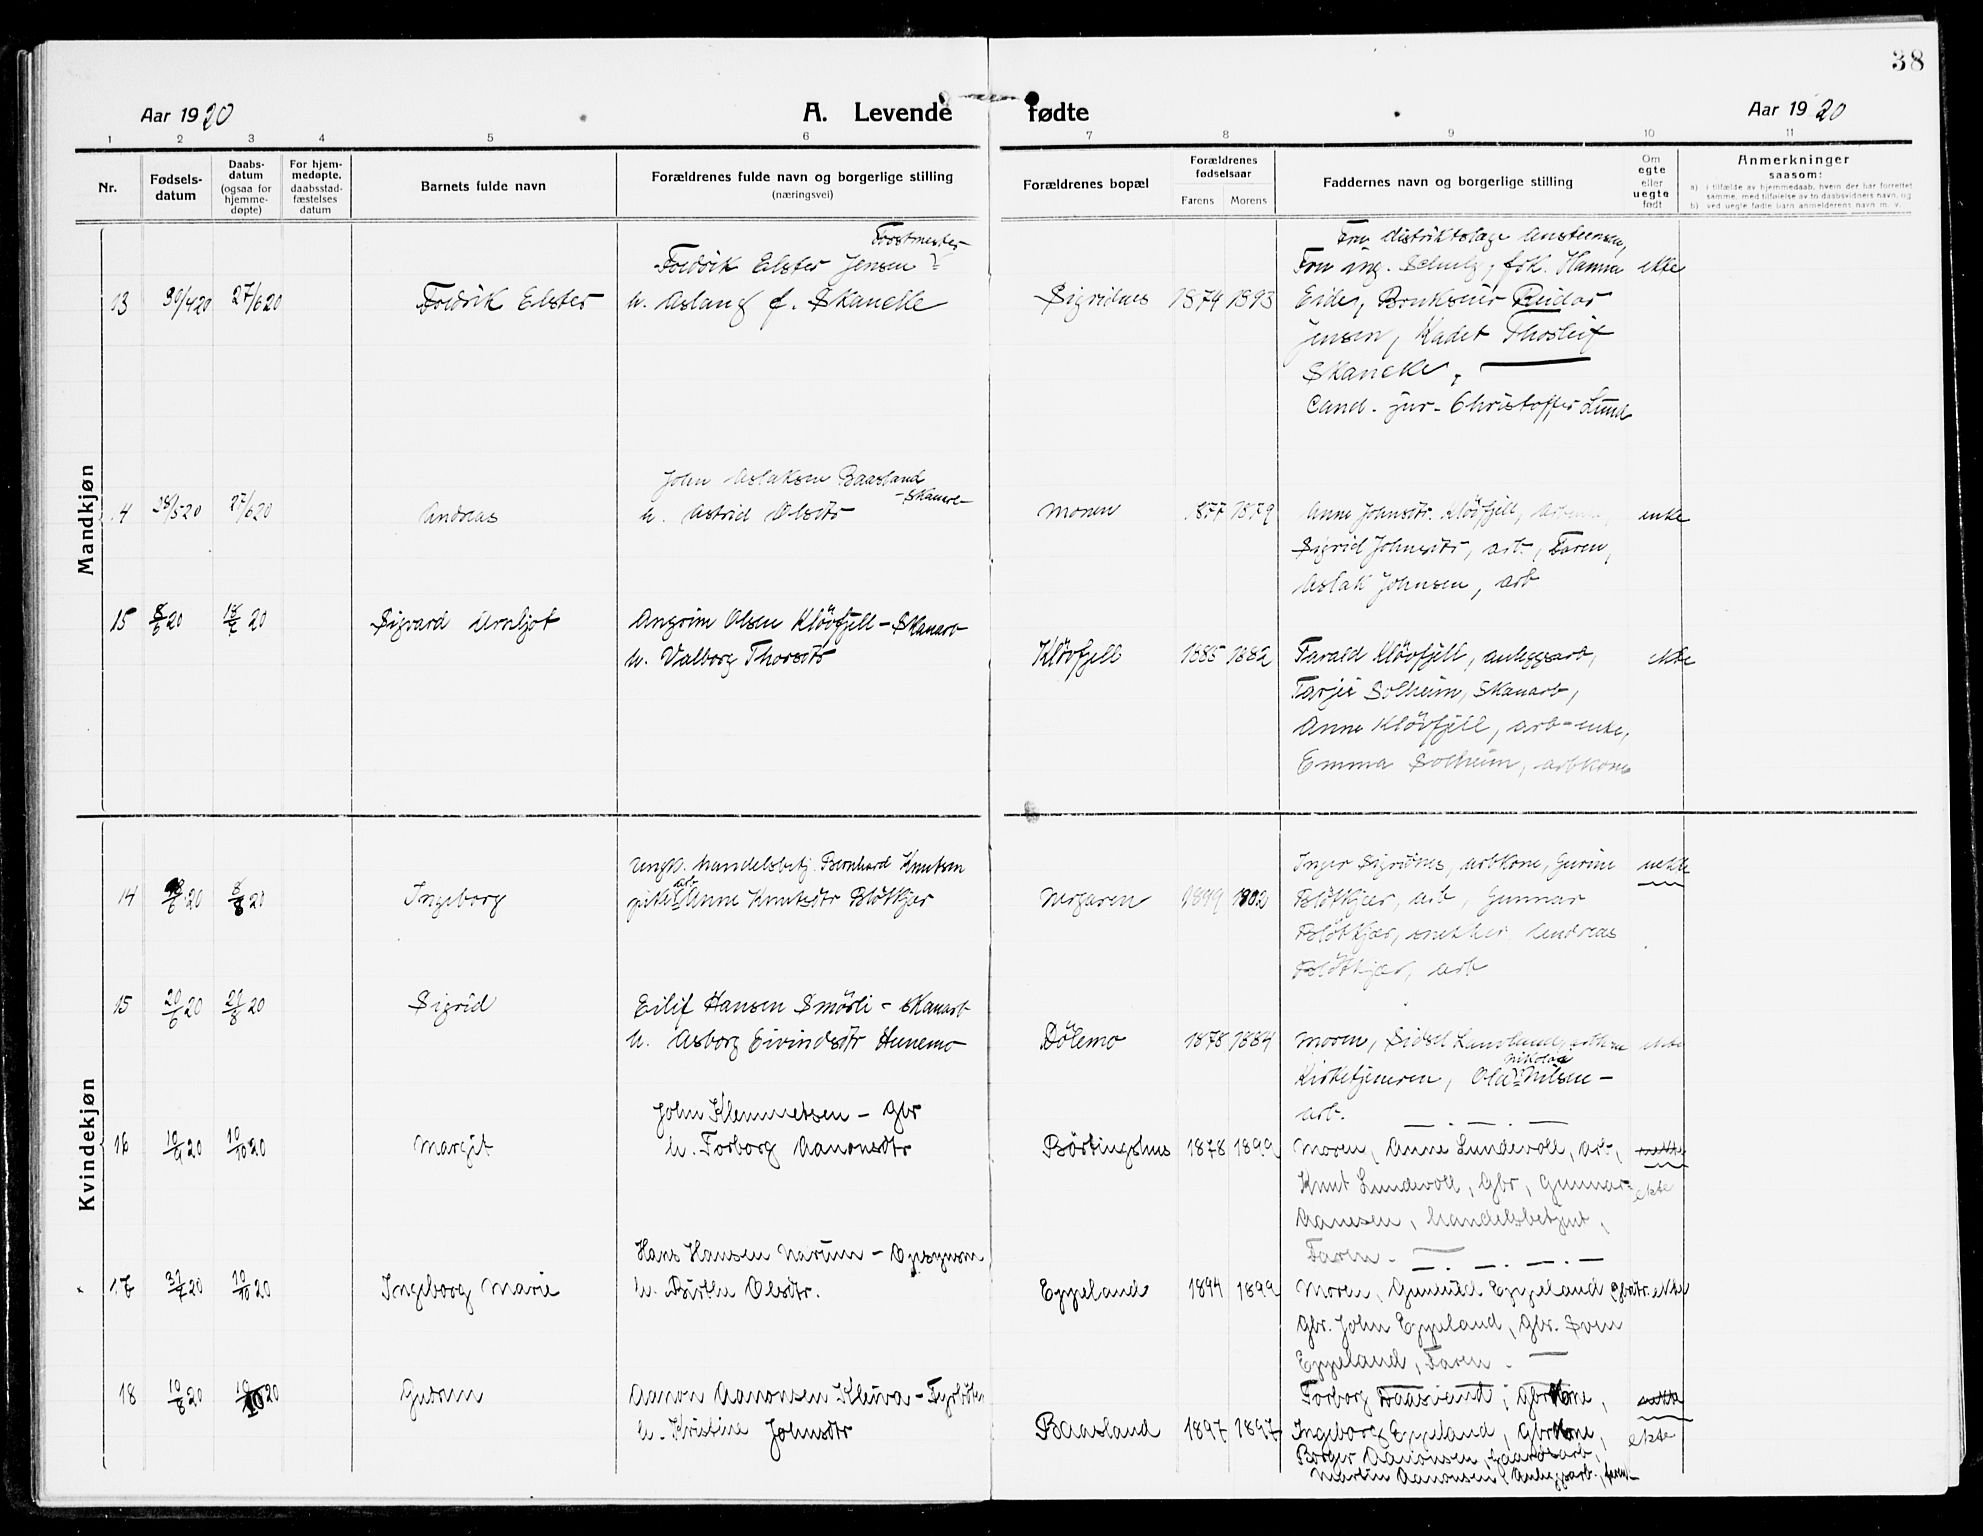 38
Aar 1920
A. Levende fødte
Aar 1920
1 2 3 4 5 6 7 8 9 10 11
Nr.
Fødsels-
datum
Daabs-
datum
(ogsaa for
hjemme-
døpte)
For hjem-
medøpte.
daabsstad-
fæstelses
datum
Barnets fulde navn
Forældrenes fulde navn og borgerlige stilling
(næringsvei)
Forældrenes bopæl
Forældrenes
fødselsaar
Farens Morens
Faddernes navn og borgerlige stilling
Om
egte
eller
uegte
født
Anmerkninger
saasom:
a) i tilfælde av hjemmedaab, hvem der har forrettet
samme, med tilføielse av to daabsvidners navn, og
b) ved uegte fødte barn anmelderens navn m. v.
Mandkjøn
13 30/4 20 27/6 20
Fredrik Elster
Forstmester
Fredrik Elster Jensen
h. Aslaug f. Skancke
Sigridnes 1879 1893
Fru distriktslæge
Fru ing. frk. Hanna
Eide, Reidar
Jensen, Kadet Thorleif
Skancke,
Cand. jur. Christoffer Lund
ekte
4 28/5 20 27/6 20
Andreas
John Aslaksen Baasland
h. Astrid Olsdtr
Monen 1877 1879
Anne Johnsdtr. Kløvfjell,
Sigrid Johnsdtr, arb., Faren,
Aslak Johnsen, arb
15 8/6 20 20
Sigvard Arnljot
Angrim Olsen Kløvfjell - Skanarb
h. Valborg Thorsdtr
Kløvfjell 1885 1882
Tarald Kløvfjell, anleggsarb,
Tarjei Solheim, Skanarb,
Anne Kløvfjell, arb-enke,
Emma Solheim, arbkone
ekte
Kvindekjøn
14 20 8/8 20
Ingeborg
ungk. handelsbetj. Bernhard Knutsen
pike arb Anne Knutsdtr Bløtkjær
1899 1902
Inger Sigridnes, arbkone, Gurine
Bløtkjær, arb, Gunnar
Bløtkjær, snekker, Andreas
Bløtkjær, arb
uekte
15 20/6 20 29/8 20
Sigrid
Eilif Hansen Smørli - skanarb
h. Asborg Eivindsdtr Hunemo
Dølemo 1878 1884
Moren, Sidsel
Kirketjeneren, Nikolai Nilsen -
arb.
ekte
16 10/9 20 10/10 20
Margit
John Klemmetsen - Gbr
h. Torborg Aanonsdtr
Børtingshus 1878 1899
Moren, Anne Lundevoll, arb,
Knut Lundevoll, Gbr, Gunnar
Aanesen, handelsbetjent,
Faren.
uekte
ekte
17 31/7 20 10/10 20
Ingeborg Marie
Hans Hansen Narum - Opsynsm
h. Birthe Olsdtr.
Eppeland 1894 1899
Moren, Gunhild Eppeland gbrdtr.
Gbr. John Eppeland, Gbr. Sven
Eppeland, Faren.
ekte
18 10/8 20 10/10 20
Gudrun
Aanon Aanonsen Kleiva - Fyrbøter
h. Kristine Johnsdtr
Baasland 1897 1897
Torborg Baasland, Gbrkone,
Ingeborg Eppeland, Gbrkone,
Borger Aanonsen, Gaardsarb,
Martin Aanonsen, Anleggsarb,
uekte
ekte